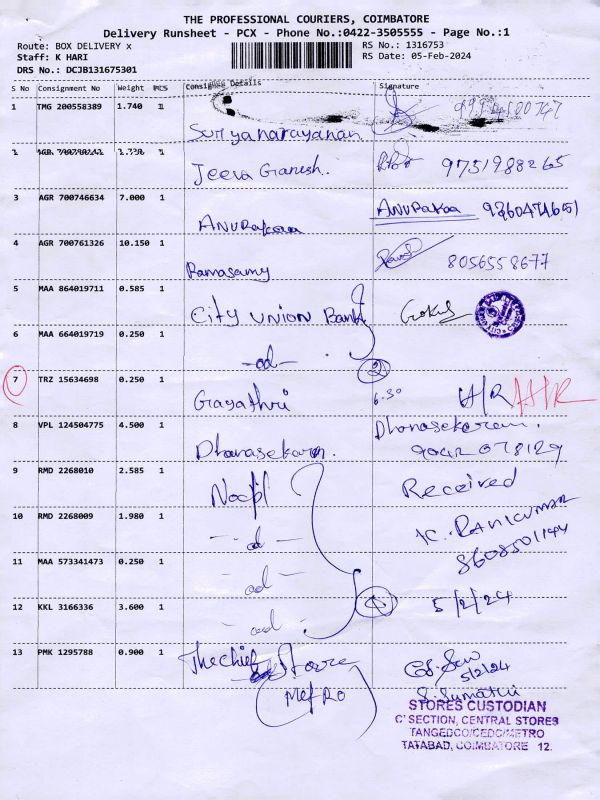 THE PROFESSIONAL COURIERS, COIMBATORE
Delivery Runsheet - PCX - Phone No.:0422-3505555 - Page No.:1
Route: BOX DELIVERY x
RS No.: 1316753
Staff: K HARI
RS Date: 05-Feb-2024
DRS No.: DCJB131675301
S No Consignment No Weight PCS Consignee Details Signature
1 TMG 200558389 1.740 1 Suryanarayanan
AGR Jeeva Ganesh.
3 AGR 700746634 7.000 1 ANURAKAA ANURAKAA
4 AGR 700761326 10.150 1 Ramasamy 8056558677
5 MAA 864019711 0.585 1 City UNION Bank Gokul
6 MAA 664019719 0.250 1 -do- 2
7 TRZ 15634698 0.250 1 Gayathri 6.30 H/R H/R
8 VPL 124504775 4.500 1 Dhanasekaran. Dhanasekaran.
9042078129
9 RMD 2268010 2.585 1 Received
10 RMD 2268009 1.980 1 - do - K. RAVIKUMAR
8608501144
11 MAA 573341473 0.250 1 - do -
12 KKL 3166336 3.600 1 - do - 4 5/2/24
13 PMK 1295788 0.900 1 The Chief Store
5/2/24
MetRO S. Sumathi
STORES CUSTODIAN
C' SECTION, CENTRAL STORES
TANGEDCO/CEDC/METRO
TATABAD, COIMBATORE 12.